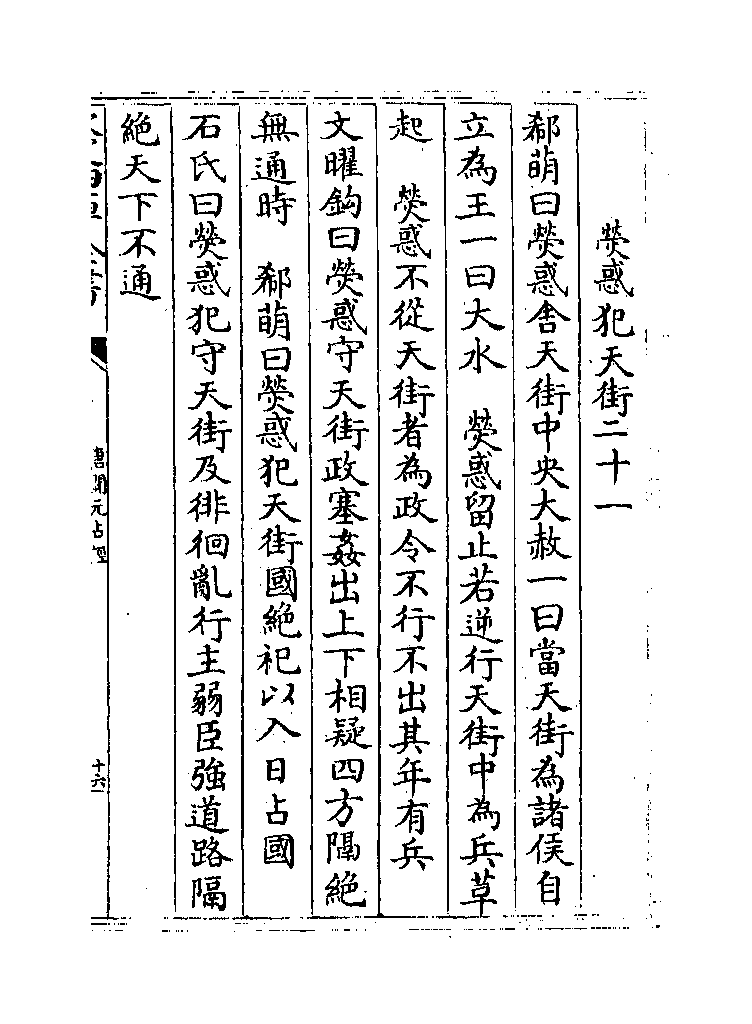 熒惑犯天街二十一
郗萌曰熒惑舍天街中央大赦一曰當天街為諸侯自
立為王一曰大水　熒惑留止若逆行天街中為兵草
起　熒惑不從天街者為政令不行不出其年有兵
文曜鈎曰熒惑守天街政塞姦出上下相疑四方隔絶
無通時　郗萌曰熒惑犯天街國絶祀以入日占國
石氏曰熒惑犯守天街及徘徊亂行主弱臣強道路隔
絶天下不通
唐開元占經
十六